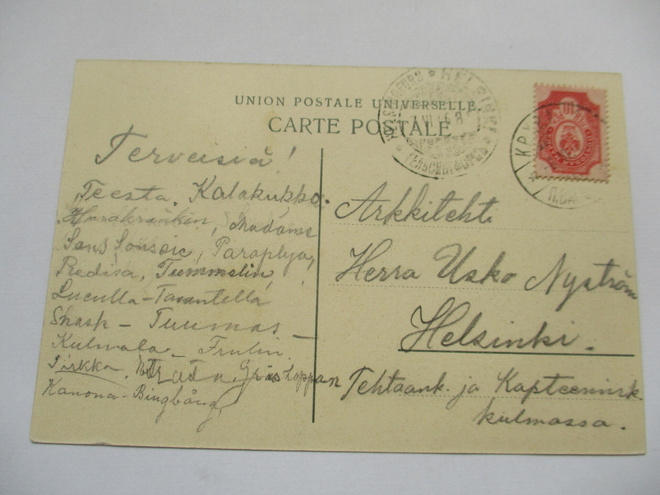 UNION POSTALE UNIVERSELLE.
CARTE POSTALE
Terveisiä!
Teesta. Kalakukko.
Madame
Sans Soucic, Paraplyy,
Rediva, Tummelin,
Luculla-Tarantella
Shasp - Tuumas -
Kulmala - Frulin.
Sirkka. Gräshoppan
Kanona - Bingbång
Arkkitehti
Herra Usko Nyström
Helsinki.
Tehtaank. ja Kapteenink.
kulmassa.
HELSINGFORS